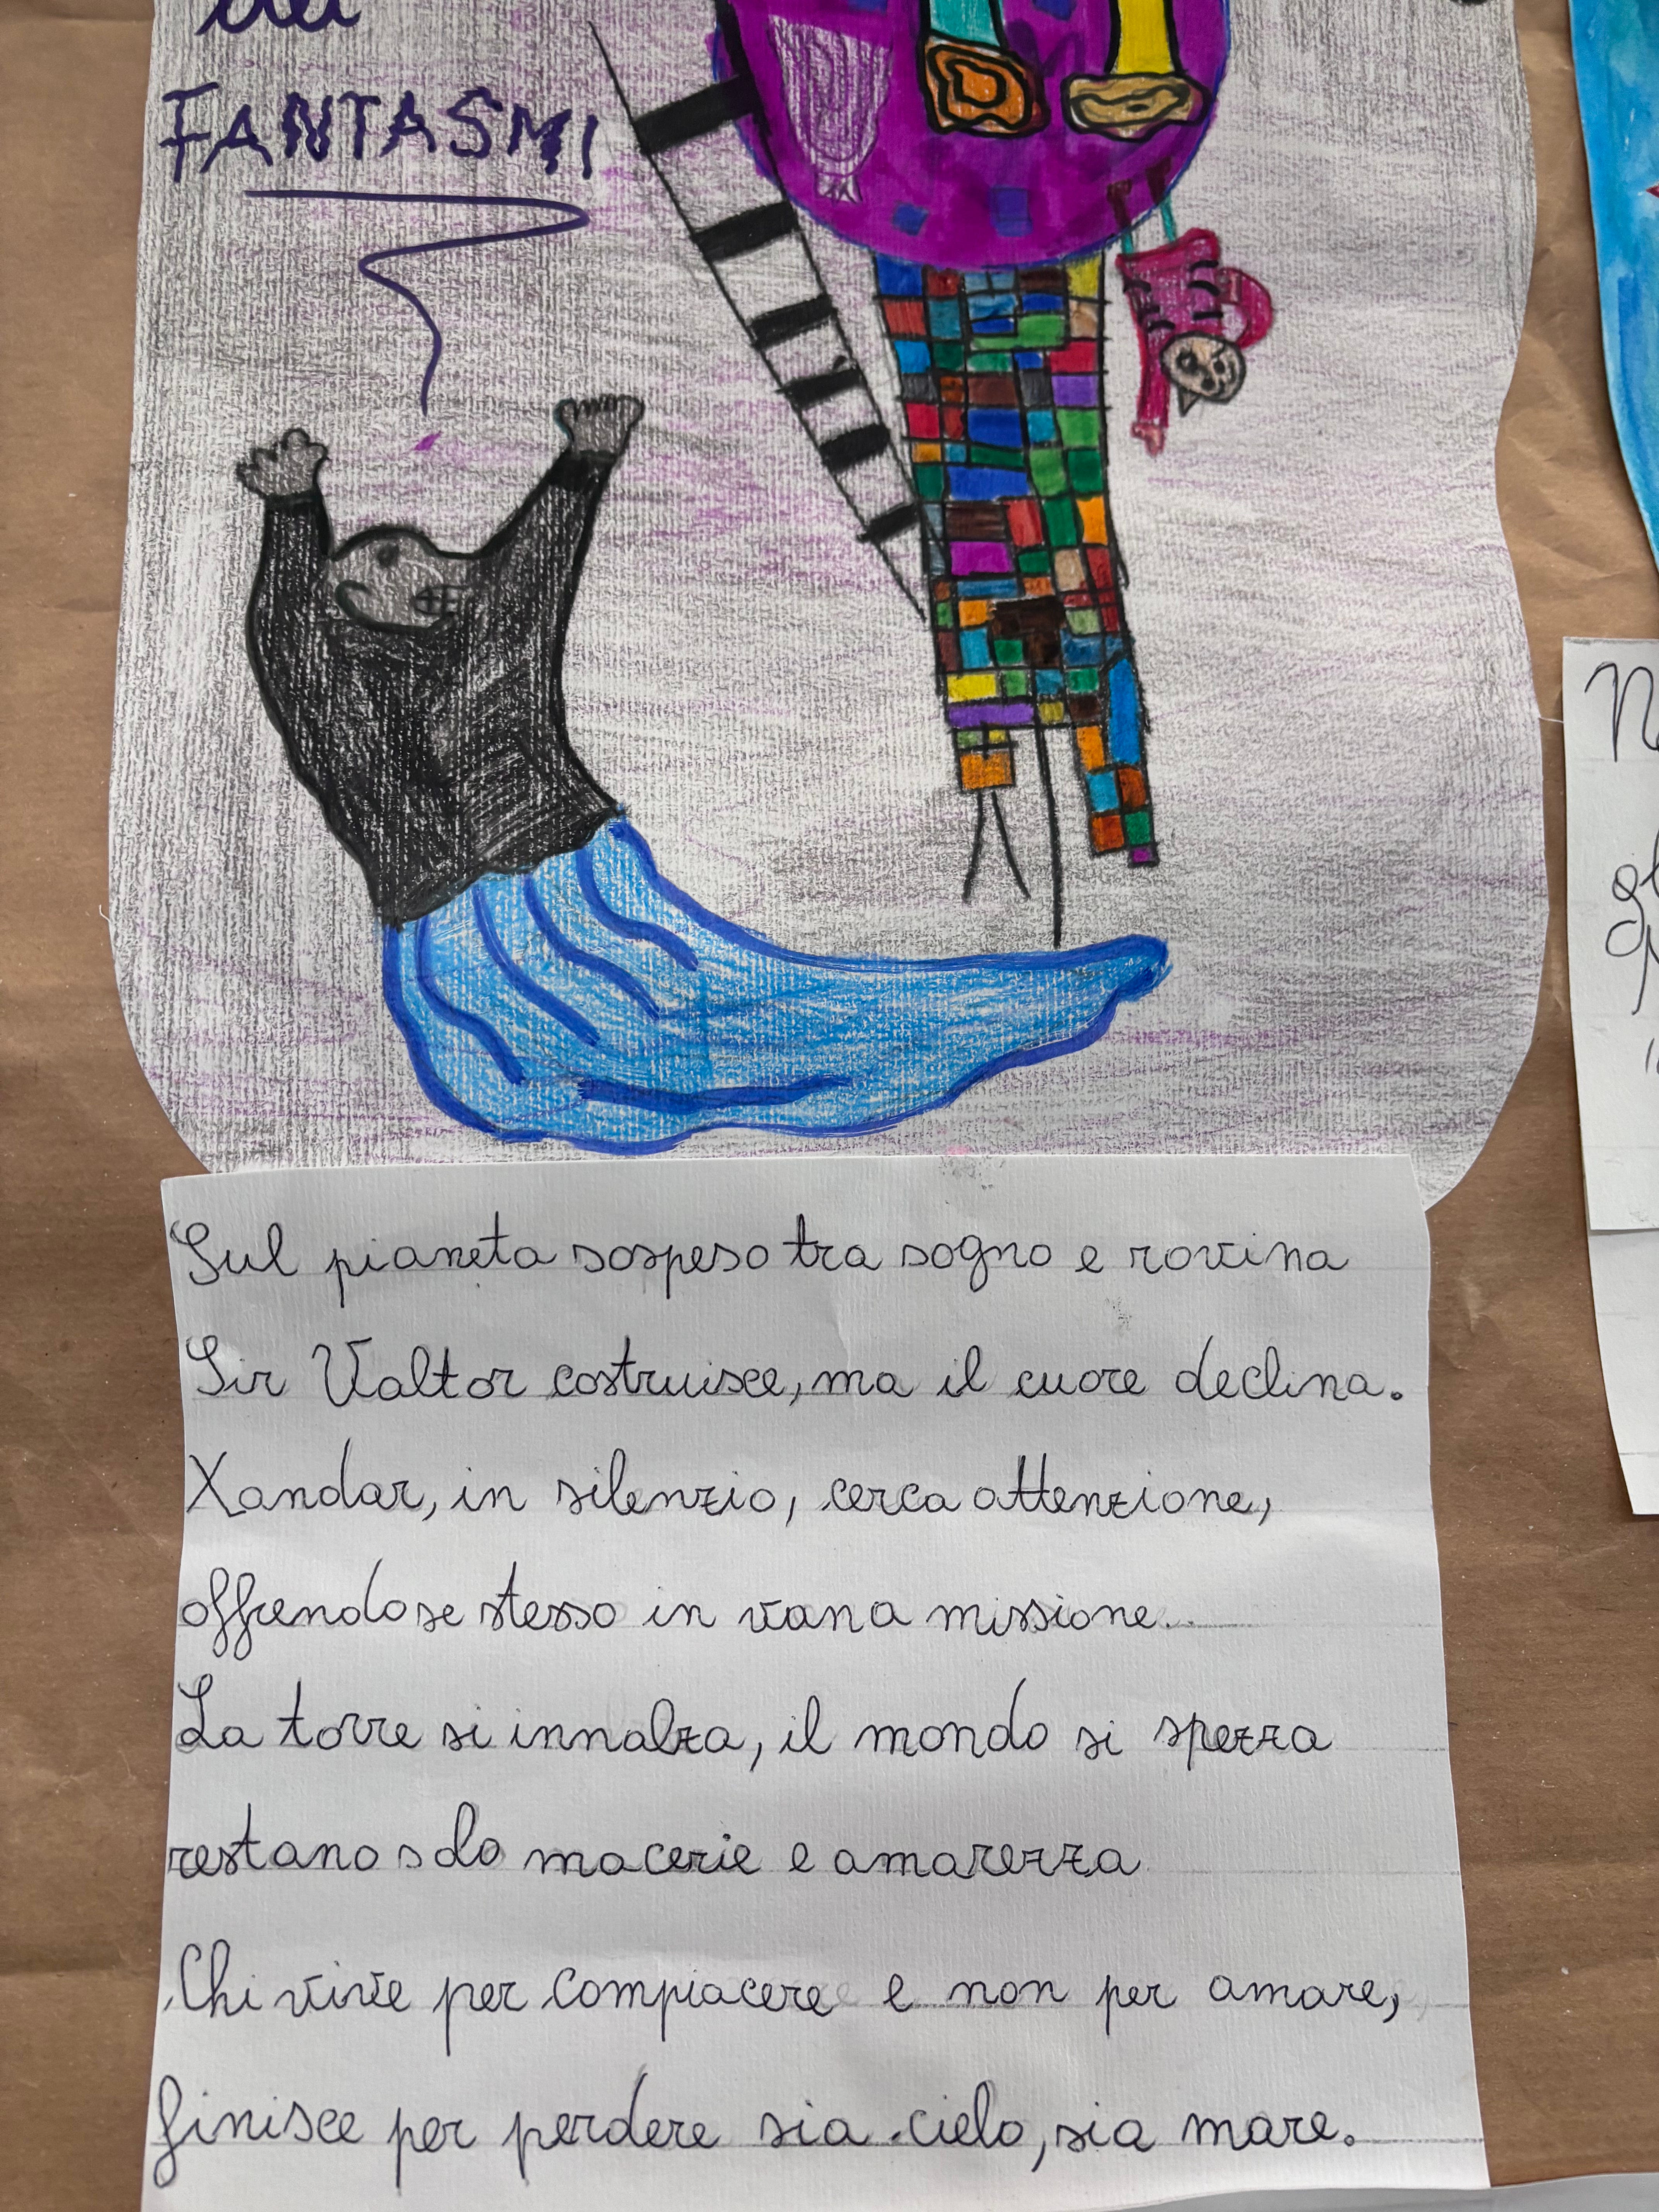 dei
FANTASMI
Sul pianeta sospeso tra sogno e rovina
Sir Valtor costruisce, ma il cuore declina.
Xandar, in silenzio, cerca attenzione,
offrendo se stesso in vana missione.
La torre si innalza, il mondo si spezza
restano solo macerie e amarezza
Chi vive per compiacere e non per amare,
finisce per perdere sia cielo, sia mare.